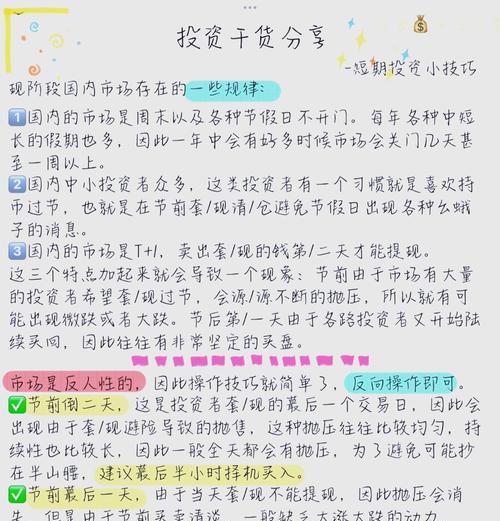 投资干货分享
-短期投资小技巧
现阶段国内市场存在的一些规律:
1国内的市场是周末以及各种节假日不开门。每年各种中短
长的假期也多，因此一年中会有好多时候市场会关门几天甚
至一周以上。
2国内中小投资者众多，这类投资者有一个习惯就是喜欢持
币过节，也就是在节前套/现清/仓避免节假日出现各种幺蛾
子的消息。
3国内的市场是T+1，卖出套/现的钱第/二天才能提现。
这三个特点加起来就会导致一个现象：节前由于市场有大量
的投资者希望套/现过节，会源/源不断的抛压，所以就有可
能出现微跌或者大跌。节后第/一天由于各路投资者又开始陆
续买回，因此往往有非常坚定的买盘。
市场是反人性的，因此操作技巧就简单了，反向操作即可。
✅节前倒二天，这是投资者套/现的最后一个交易日，因此会
出现由于套/现避险导致的抛售，这种抛压往往比较均匀，持
续性也比较长，因此一般全天都会有抛压，为了避免可能抄
在半山腰，建议最后半小时择机买入。
✅节前最后一天，由于当天套/现不能提现，因此抛压会消
失，但是由于节前买卖清淡，一般缺乏大涨大跌的动力